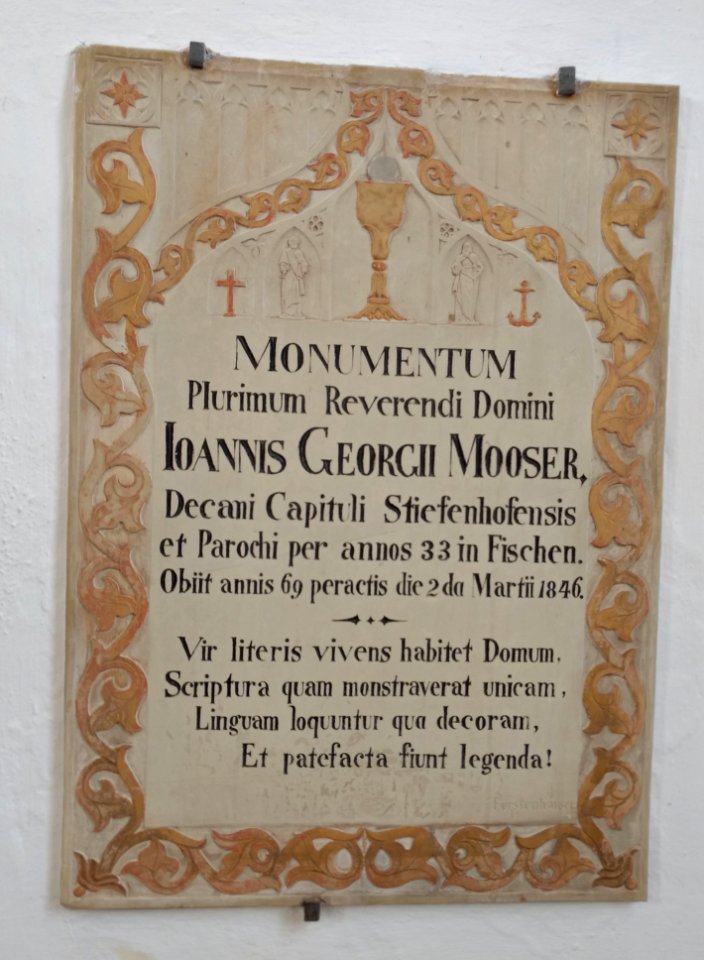 MONUMENTUM
Plurimum Reverendi Domini
IOANNIS GEORGII MOOSER,
Decani Capituli Stiefenhofensis
et Parochi per annos 33 in Fischen.
Obiit annis 69 peractis die 2da Martii 1846.
Vir literis vivens habitet Domum,
Scriptura quam monstraverat unicam,
Linguam loquuntur qua decoram,
Et patefacta fiunt legenda!